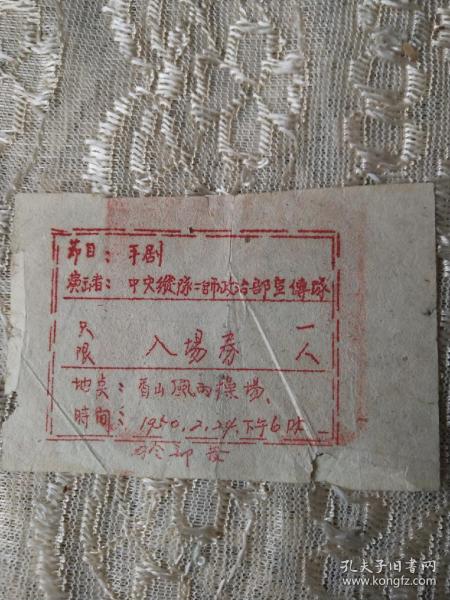 節目：平剧
演出者：中央縱隊二師政治部宣傳隊
只限 入場券 一人
地点：香山風雨操場
時間：1950.2.24.下午6时
孔夫子旧书网
www.kongfz.com